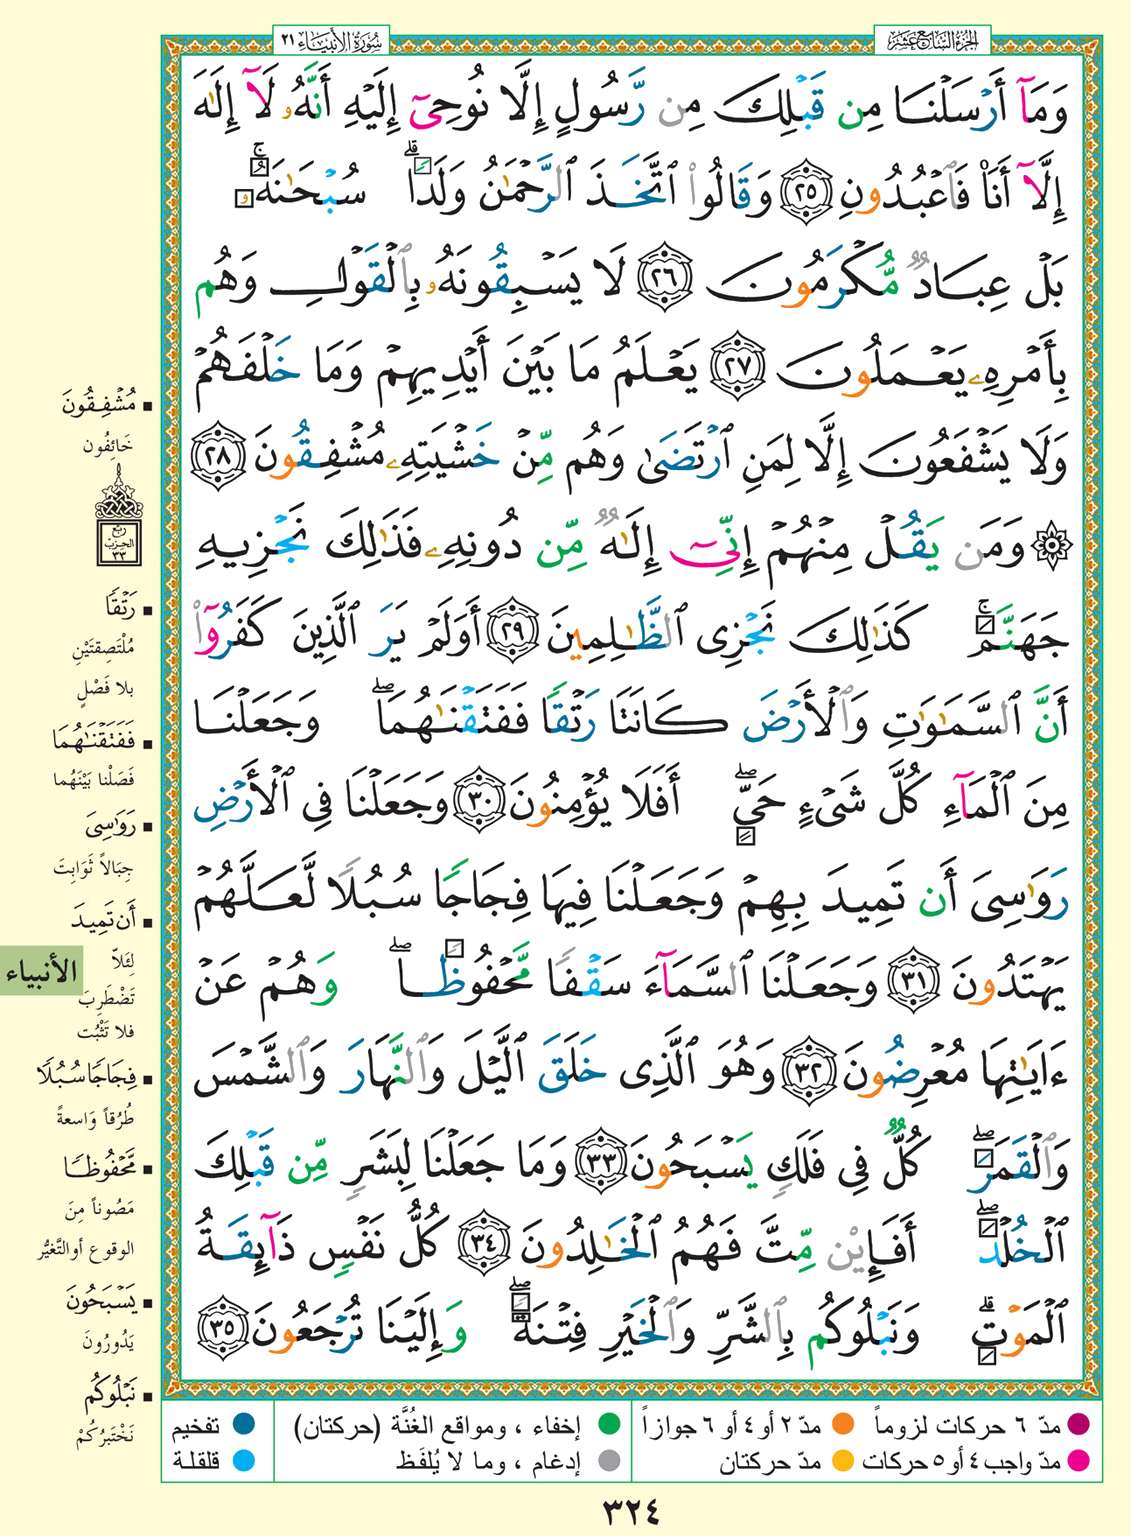 الجزء السابع عشر
سورة الأنبياء ٢١
وَمَآ أَرْسَلْنَا مِن قَبْلِكَ مِن رَّسُولٍ إِلَّا نُوحِىٓ إِلَيْهِ أَنَّهُۥ لَآ إِلَٰهَ
إِلَّآ أَنَا۠ فَٱعْبُدُونِ ٢٥ وَقَالُوا۟ ٱتَّخَذَ ٱلرَّحْمَٰنُ وَلَدًا ۗ سُبْحَٰنَهُۥ ۚ
بَلْ عِبَادٌ مُّكْرَمُونَ ٢٦ لَا يَسْبِقُونَهُۥ بِٱلْقَوْلِ وَهُم
بِأَمْرِهِۦ يَعْمَلُونَ ٢٧ يَعْلَمُ مَا بَيْنَ أَيْدِيهِمْ وَمَا خَلْفَهُمْ
وَلَا يَشْفَعُونَ إِلَّا لِمَنِ ٱرْتَضَىٰ وَهُم مِّنْ خَشْيَتِهِۦ مُشْفِقُونَ ٢٨
۞ وَمَن يَقُلْ مِنْهُمْ إِنِّىٓ إِلَٰهٌ مِّن دُونِهِۦ فَذَٰلِكَ نَجْزِيهِ
جَهَنَّمَ ۚ كَذَٰلِكَ نَجْزِى ٱلظَّٰلِمِينَ ٢٩ أَوَلَمْ يَرَ ٱلَّذِينَ كَفَرُوٓا۟
أَنَّ ٱلسَّمَٰوَٰتِ وَٱلْأَرْضَ كَانَتَا رَتْقًا فَفَتَقْنَٰهُمَا ۖ وَجَعَلْنَا
مِنَ ٱلْمَآءِ كُلَّ شَىْءٍ حَىٍّ ۖ أَفَلَا يُؤْمِنُونَ ٣٠ وَجَعَلْنَا فِى ٱلْأَرْضِ
رَوَٰسِىَ أَن تَمِيدَ بِهِمْ وَجَعَلْنَا فِيهَا فِجَاجًا سُبُلًا لَّعَلَّهُمْ
يَهْتَدُونَ ٣١ وَجَعَلْنَا ٱلسَّمَآءَ سَقْفًا مَّحْفُوظًا ۖ وَهُمْ عَنْ
ءَايَٰتِهَا مُعْرِضُونَ ٣٢ وَهُوَ ٱلَّذِى خَلَقَ ٱلَّيْلَ وَٱلنَّهَارَ وَٱلشَّمْسَ
وَٱلْقَمَرَ ۖ كُلٌّ فِى فَلَكٍ يَسْبَحُونَ ٣٣ وَمَا جَعَلْنَا لِبَشَرٍ مِّن قَبْلِكَ
ٱلْخُلْدَ ۖ أَفَإِي۟ن مِّتَّ فَهُمُ ٱلْخَٰلِدُونَ ٣٤ كُلُّ نَفْسٍ ذَآئِقَةُ
ٱلْمَوْتِ ۗ وَنَبْلُوكُم بِٱلشَّرِّ وَٱلْخَيْرِ فِتْنَةً ۖ وَإِلَيْنَا تُرْجَعُونَ ٣٥
■ مُشْفِقُونَ
خَائِفُون
ربع
الحزب
٣٣
■ رَتْقًا
مُلْتَصِقَتَيْنِ
بلا فَصْلٍ
■ فَفَتَقْنَٰهُمَا
فَصَلْنا بَيْنَهُما
■ رَوَٰسِىَ
جِبَالاً ثَوَابِتَ
■ أَن تَمِيدَ
لِئَلاّ
تَضْطَرِبَ
فلا تَثْبُت
■ فِجَاجًا سُبُلًا
طُرُقاً وَاسعةً
■ مَّحْفُوظًا
مَصُوناً مِنَ
الوقوع أو التَّغيُّر
■ يَسْبَحُونَ
يَدُورُونَ
■ نَبْلُوكُم
نَخْتَبِرُكُمْ
الأنبياء
مدّ ٦ حركات لزوماً مدّ ٢ أو ٤ أو ٦ جوازاً إخفاء ، ومواقع الغُنَّة (حركتان) تفخيم
مدّ واجب ٤ أو ٥ حركات مدّ حركتان إدغام ، وما لا يُلفَظ قلقلة
٣٢٤